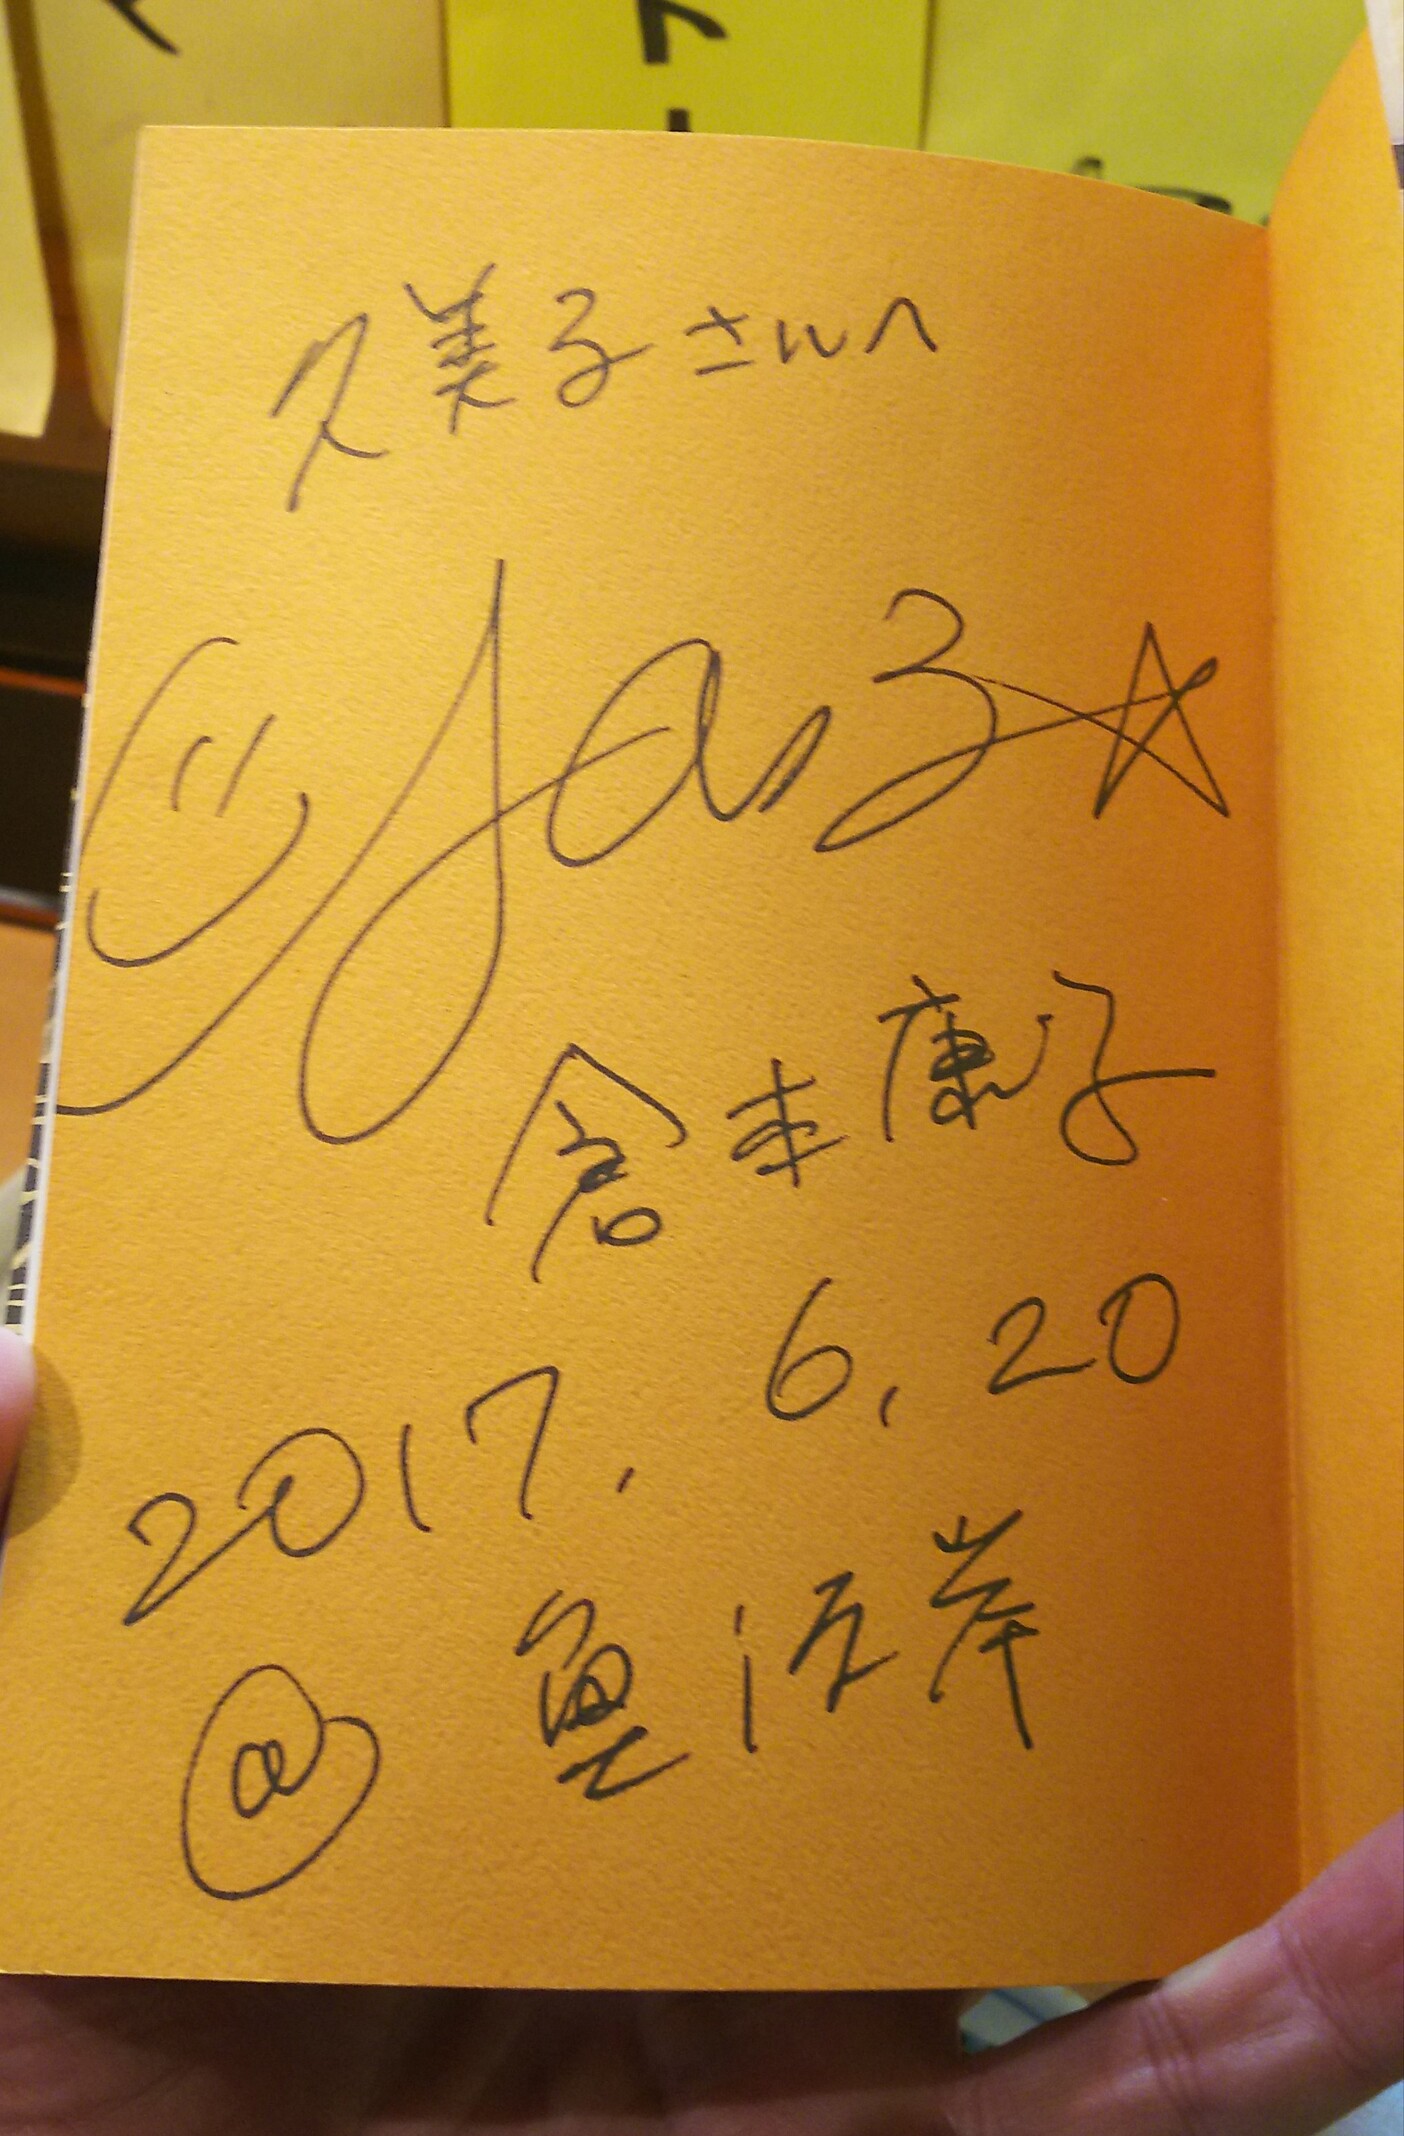 久美子さんへ
倉本康子
2017. 6. 20
@ 魚河岸